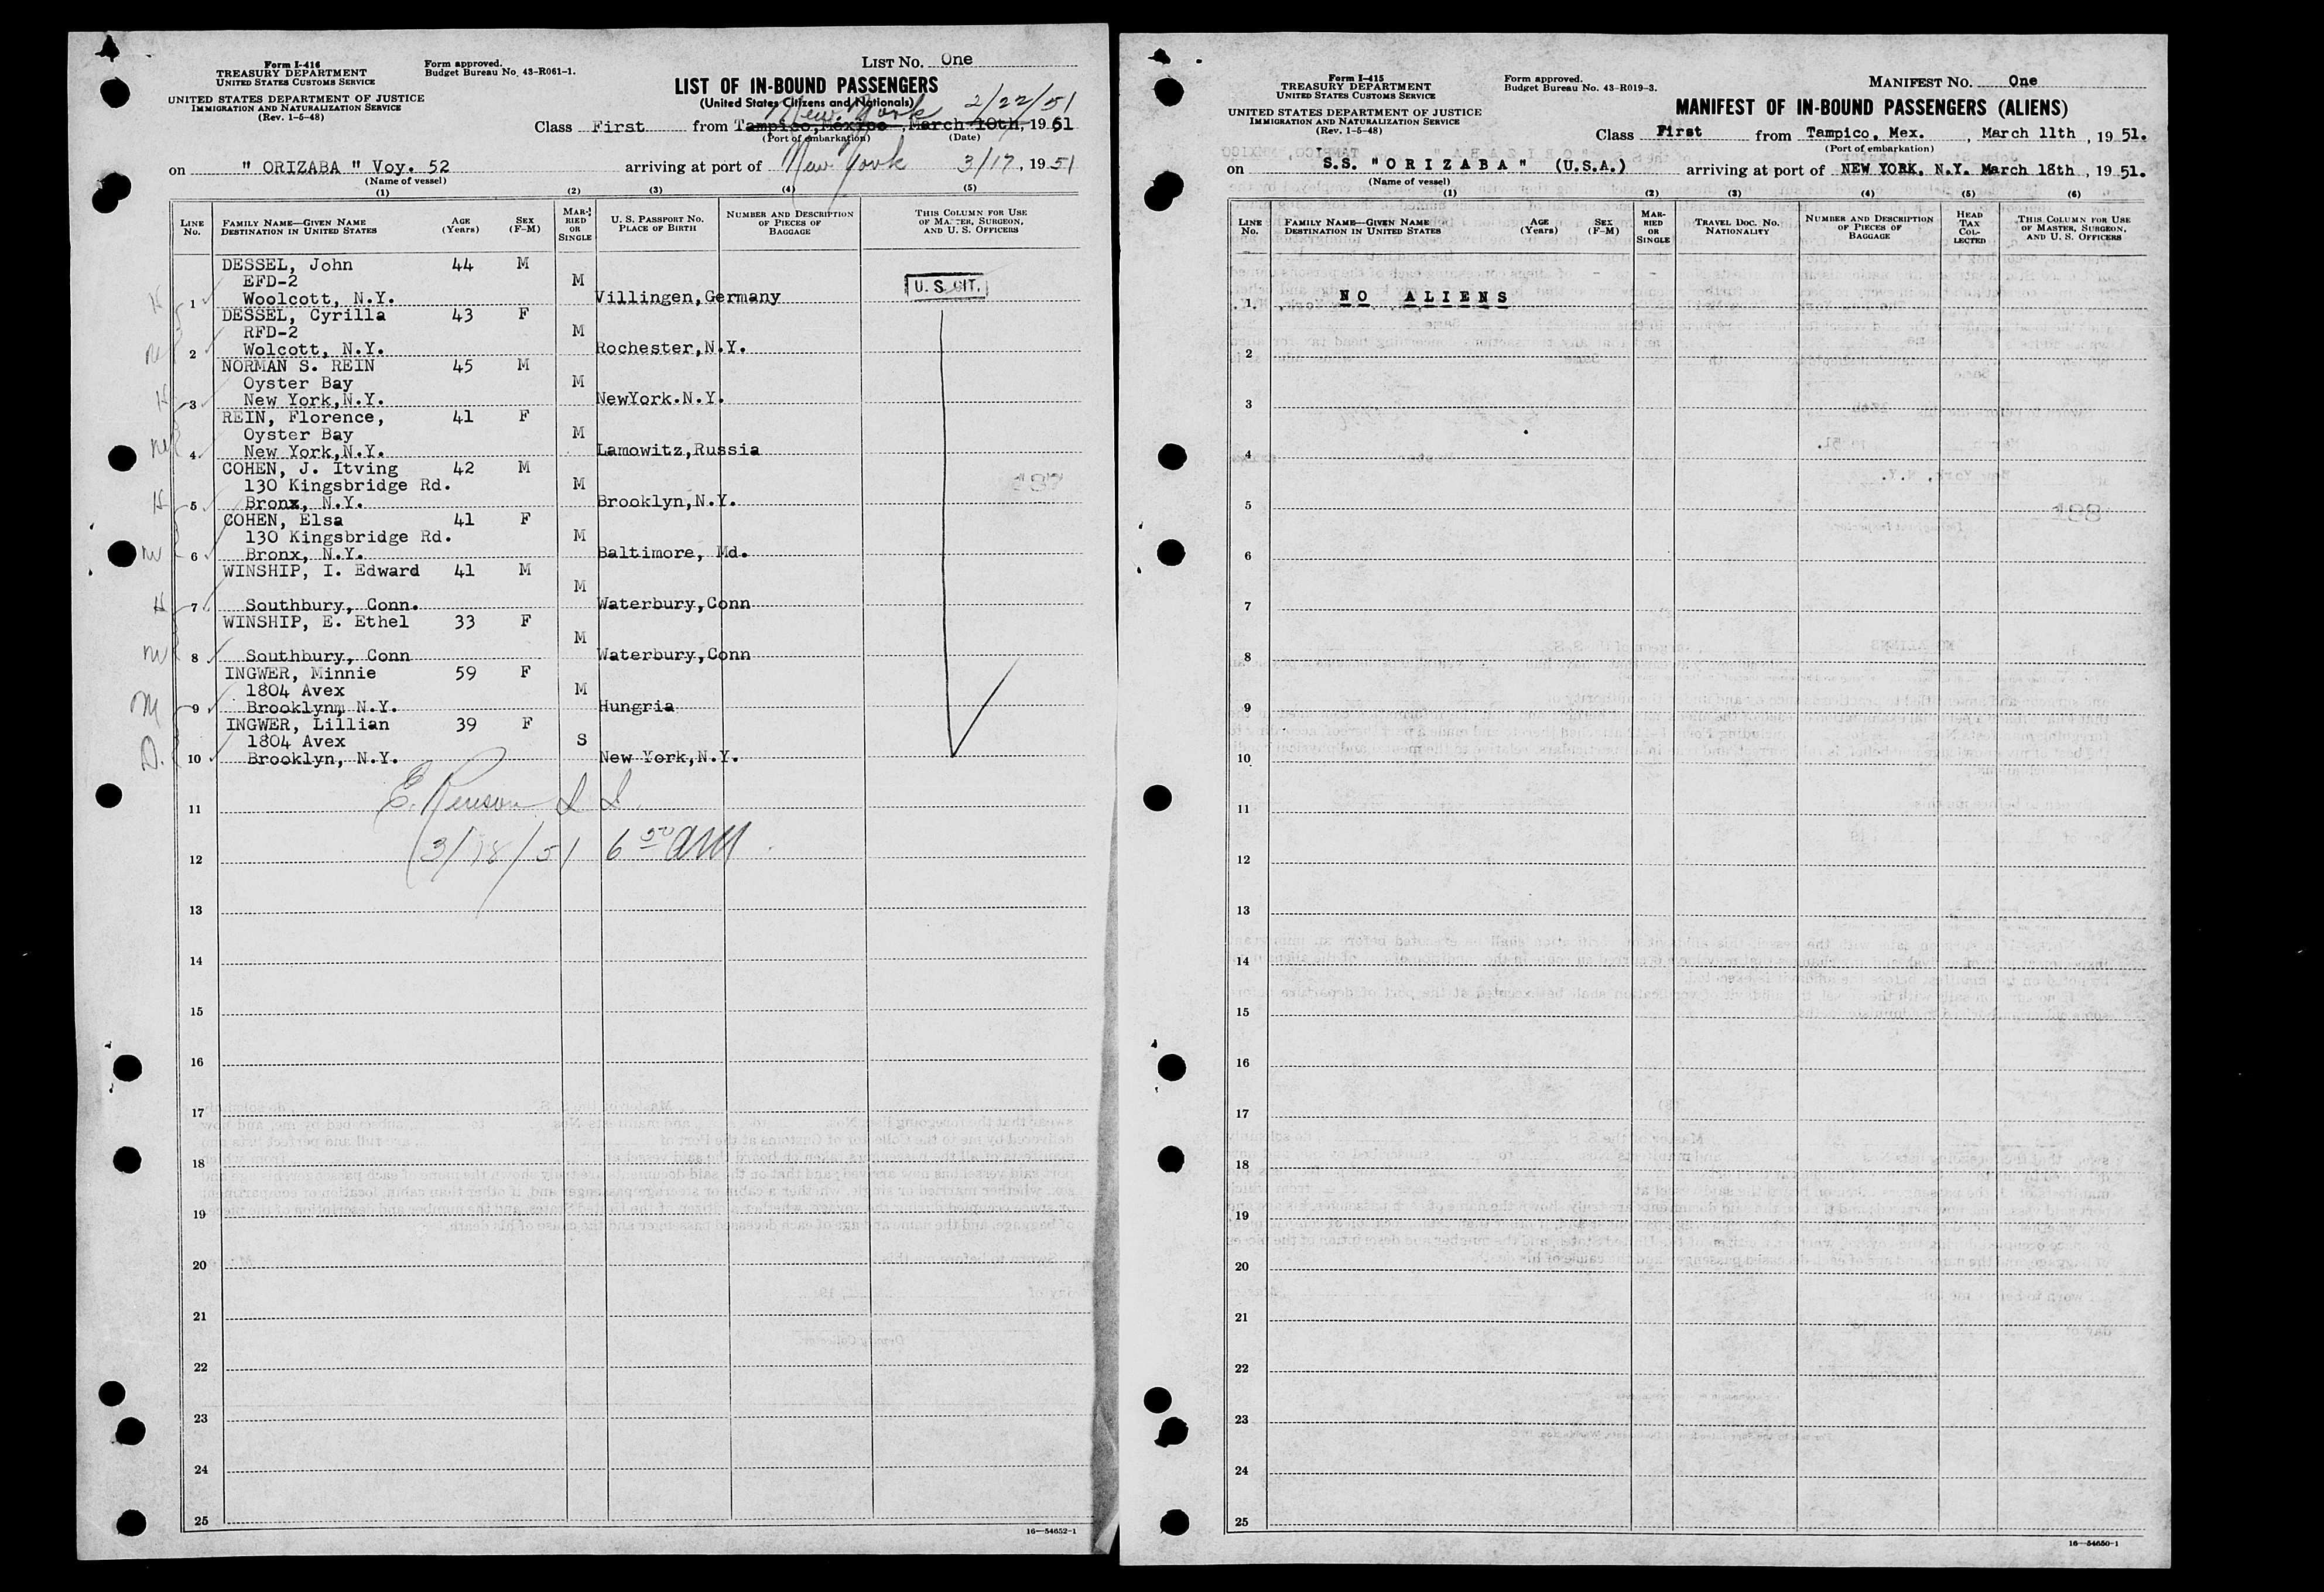 Form I-416
TREASURY DEPARTMENT
UNITED STATES CUSTOMS SERVICE
UNITED STATES DEPARTMENT OF JUSTICE
IMMIGRATION AND NATURALIZATION SERVICE
(Rev. 1-5-48)
Form approved.
Budget Bureau No. 43-R061-1.
LIST NO. One
LIST OF IN-BOUND PASSENGERS
(United States Citizens and Nationals)
New York 2/22/51
Class First from Tampico, Mexico, March 10th, 1951
(Port of embarkation) (Date)
on " ORIZABA " Voy. 52 arriving at port of New York 3/17, 1951
(Name of vessel)
(1) (2) (3) (4) (5)
LINE No. FAMILY NAME—GIVEN NAME DESTINATION IN UNITED STATES AGE (Years) SEX (F-M) MARRIED OR SINGLE U. S. PASSPORT NO. PLACE OF BIRTH NUMBER AND DESCRIPTION OF PIECES OF BAGGAGE THIS COLUMN FOR USE OF MASTER, SURGEON, AND U. S. OFFICERS
DESSEL, John 44 M
EFD-2 M U. S. CIT.
1 Woolcott, N.Y. Villingen,Germany
DESSEL, Cyrilla 43 F
RFD-2 M
2 Wolcott, N.Y. Rochester,N.Y.
NORMAN S. REIN 45 M
Oyster Bay M
3 New York,N.Y. NewYork.N.Y.
REIN, Florence, 41 F
Oyster Bay M
4 New York,N.Y. Lamowitz,Russia
COHEN, J. Itving 42 M
130 Kingsbridge Rd. M 187
5 Bronx, N.Y. Brooklyn,N.Y.
COHEN, Elsa 41 F
130 Kingsbridge Rd. M
6 Bronx, N.Y. Baltimore, Md.
WINSHIP, I. Edward 41 M
M
7 Southbury, Conn. Waterbury,Conn
WINSHIP, E. Ethel 33 F
M
8 Southbury, Conn Waterbury,Conn
INGWER, Minnie 59 F
1804 Avex M
9 Brooklynm N.Y. Hungria
INGWER, Lillian 39 F
1804 Avex S
10 Brooklyn, N.Y. New York,N.Y.
11
3/18/51 6 50 AM
12
13
14
15
16
17
18
19
20
21
22
23
24
25
16—54652-1
Form I-415
TREASURY DEPARTMENT
UNITED STATES CUSTOMS SERVICE
UNITED STATES DEPARTMENT OF JUSTICE
IMMIGRATION AND NATURALIZATION SERVICE
(Rev. 1-5-48)
Form approved.
Budget Bureau No. 43-R019-3.
MANIFEST NO. One
MANIFEST OF IN-BOUND PASSENGERS (ALIENS)
Class First from Tampico, Mex., March 11th, 1951.
(Port of embarkation)
on S.S. "ORIZABA" (U.S.A.) arriving at port of NEW YORK, N.Y. March 18th, 1951.
(Name of vessel)
(1) (2) (3) (4) (5) (6)
LINE No. FAMILY NAME—GIVEN NAME DESTINATION IN UNITED STATES AGE (Years) SEX (F-M) MARRIED OR SINGLE TRAVEL DOC. NO. NATIONALITY NUMBER AND DESCRIPTION OF PIECES OF BAGGAGE HEAD TAX COLLECTED THIS COLUMN FOR USE OF MASTER, SURGEON, AND U. S. OFFICERS
1 NO ALIENS
2
3
4
5 188
6
7
8
9
10
11
12
13
14
15
16
17
18
19
20
21
22
23
24
25
16—54650-1